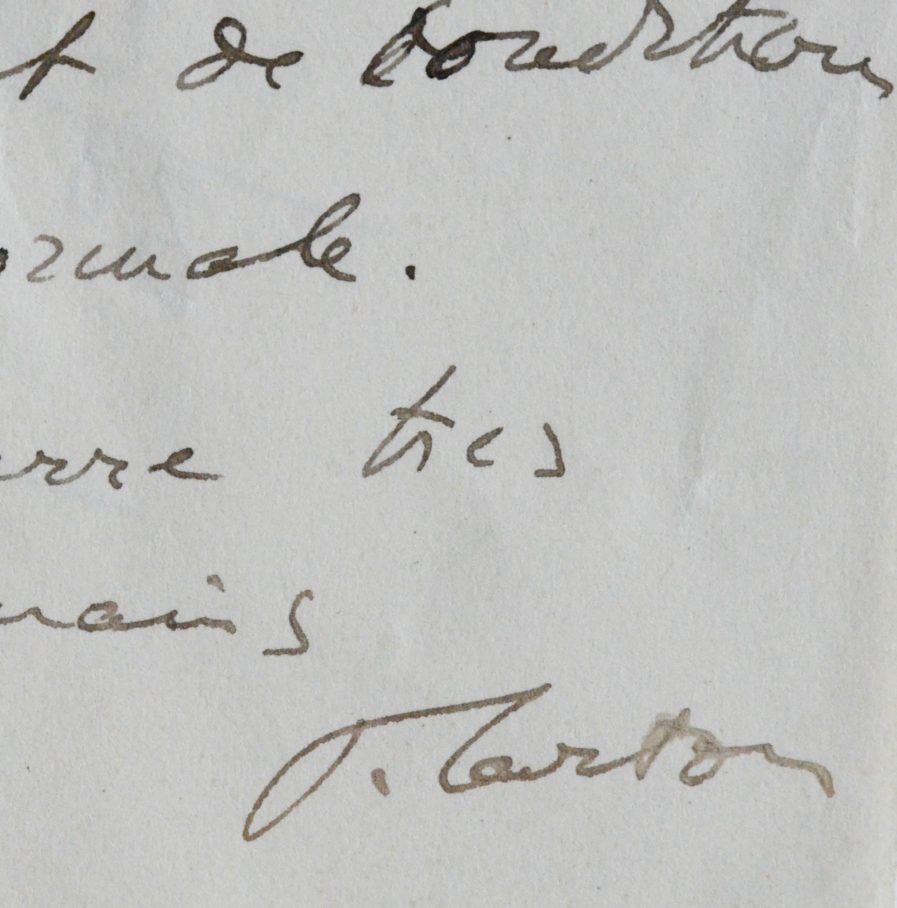 t de condition
ormale.
erre tres
mains
P. Carton